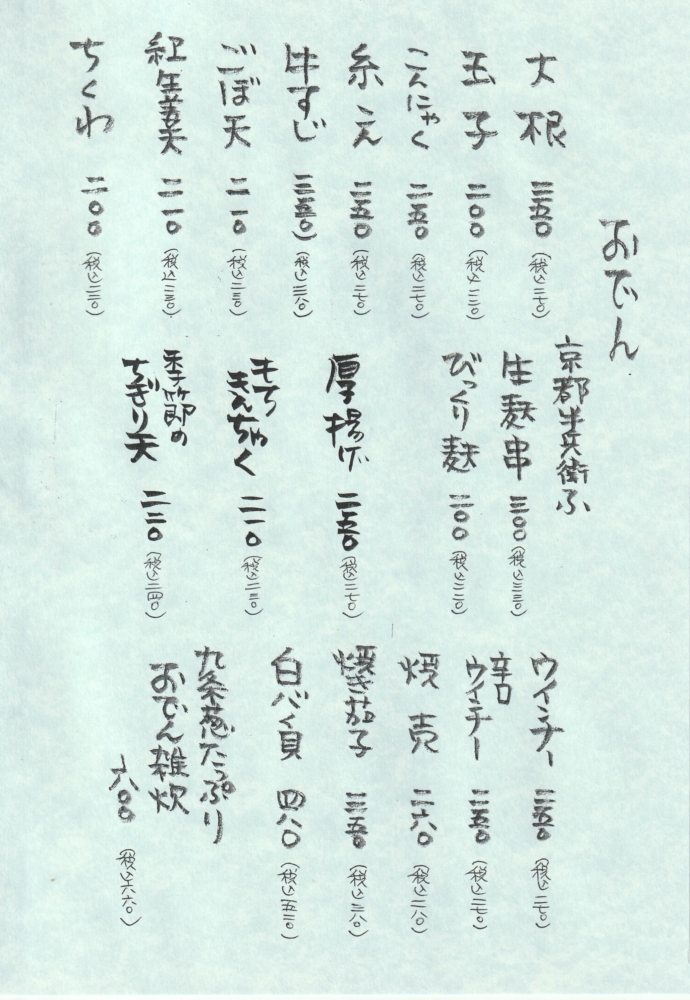 おでん
大根 二五〇（税込二七〇）
玉子 二〇〇（税込二二〇）
こんにゃく 二五〇（税込二七〇）
糸こん 二五〇（税込二七〇）
牛すじ 三五〇（税込三八〇）
ごぼ天 二一〇（税込二三〇）
紅生姜天 二一〇（税込二三〇）
ちくわ 二〇〇（税込二二〇）
京都半兵衛ふ
生麩串 三〇〇（税込三三〇）
びっくり麩 二〇〇（税込二二〇）
厚揚げ 二五〇（税込二七〇）
もち
きんちゃく 二一〇（税込二三〇）
季節の
ちぎり天 二二〇（税込二四〇）
ウインナー 二五〇（税込二七〇）
辛口
ウインナー 二五〇（税込二七〇）
焼売 二六〇（税込二八〇）
焼き茄子 三五〇（税込三八〇）
白バイ貝 四八〇（税込五二〇）
九条葱たっぷり
おでん雑炊
六〇〇（税込六六〇）